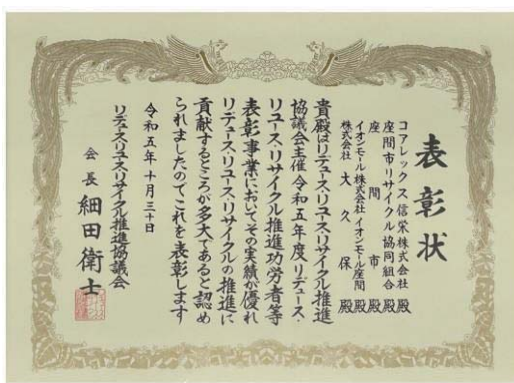 表彰状
コアレックス信栄株式会社 殿
座間市リサイクル協同組合 殿
座間市 殿
イオンモール株式会社イオンモール座間 殿
株式会社大久保 殿
貴殿はリデュース・リユース・リサイクル推進
協議会主催令和五年度リデュース・
リユース・リサイクル推進功労者等
表彰事業においてその実績が優れ
リデュース・リユース・リサイクルの推進に
貢献するところが多大であると認め
られましたのでこれを表彰します
令和五年十月三十日
リデュース・リユース・リサイクル推進協議会
会長 細田衛士